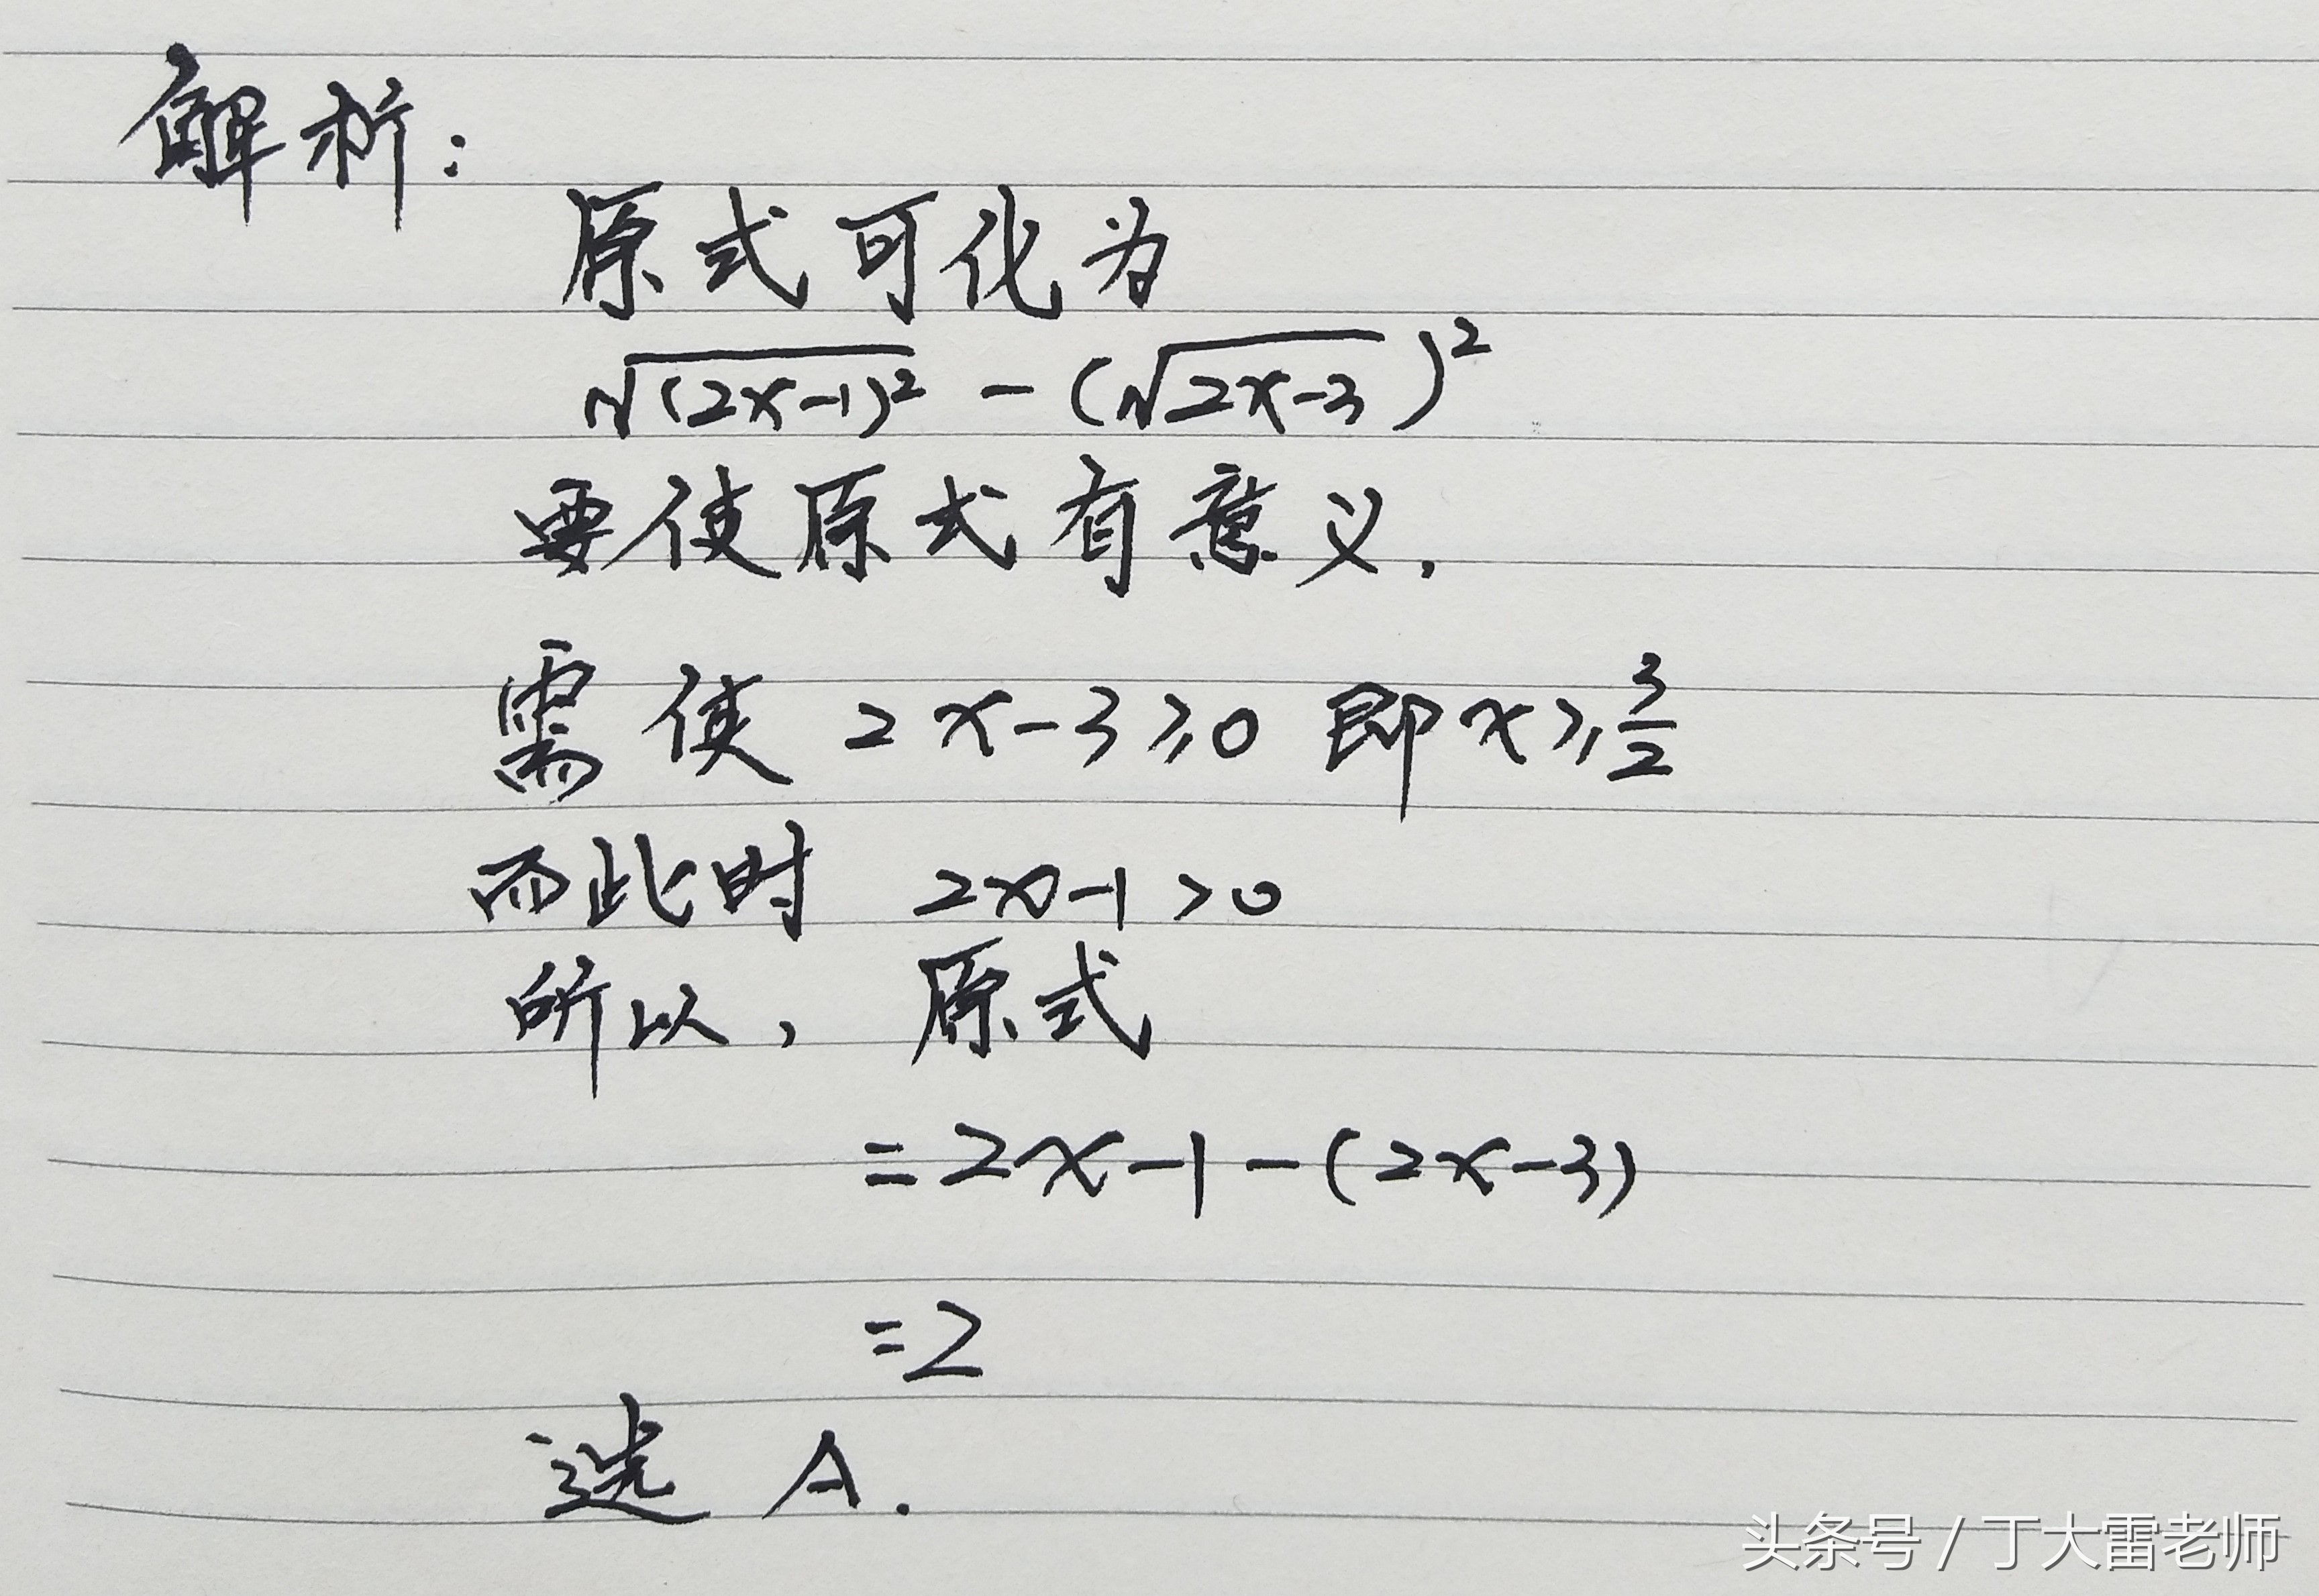 解析:
原式可化为
√(2x-1)² - (√2x-3)²
要使原式有意义,
需使 2x-3≥0 即x≥3/2
而此时 2x-1>0
所以, 原式
=2x-1-(2x-3)
=2
选 A.
头条号 / 丁大雷老师